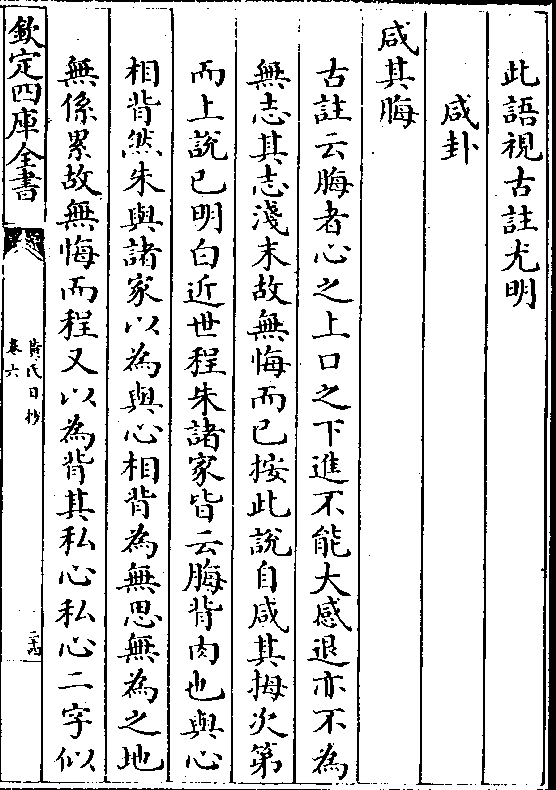 此語視古註尤明
咸卦
咸其脢
古註云脢者心之上口之下進不能大感退亦不為
無志其志淺末故無悔而已按此說自咸其拇次第
而上說已明白近世程朱諸家皆云脢背肉也與心
相背然朱與諸家以為與心相背為無思無為之地
無係累故無悔而程又以為背其私心私心二字似
欽定四庫全書
黃氏日抄
卷六